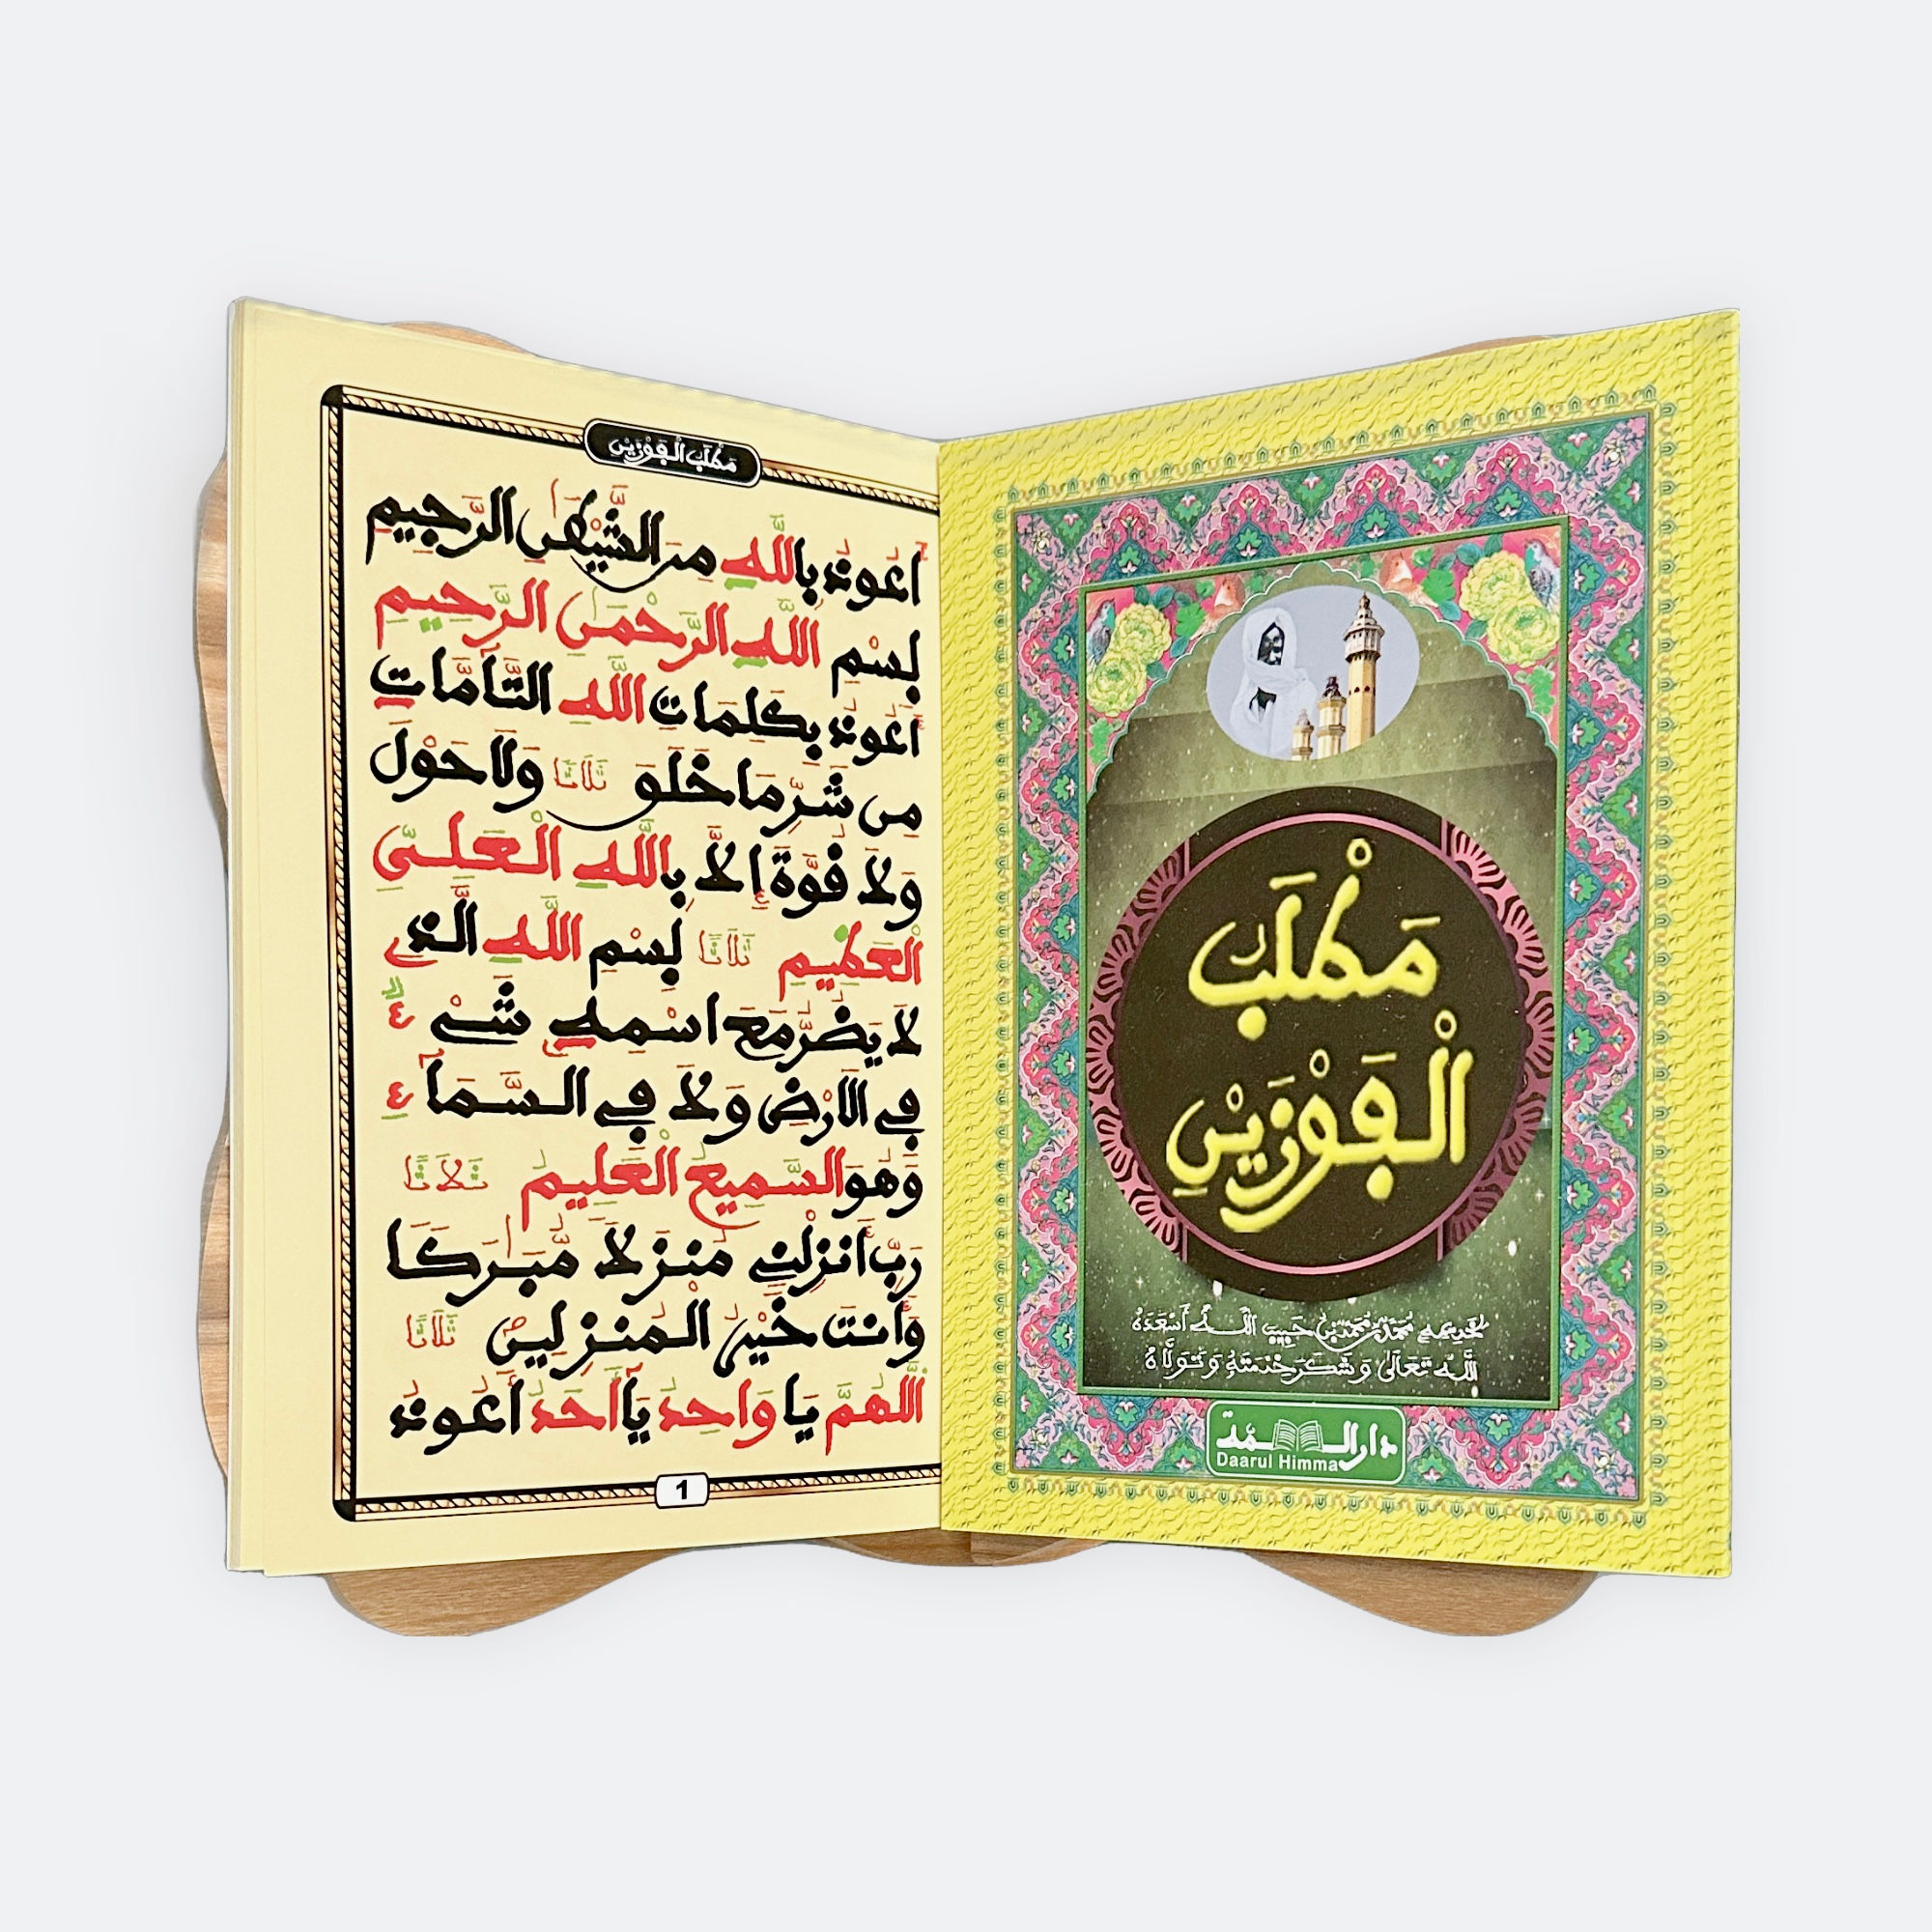 مَطْلَبُ
الْفَوْزَيْنِ
لخديمه محمد بن محمد بن حبيب الله أسعده
الله تعالى وشكر خدمته وتولاه
دار الهمة
Daarul Himma
مَطْلَبُ الْفَوْزَيْنِ
أعوذ بالله من الشيطن الرجيم
بسم الله الرحمن الرحيم
أعوذ بكلمات الله التآمات
من شر ما خلق ثلاثا ولا حول
ولا قوة إلا بالله العلي
العظيم ثلاثا بسم الله الذي
لا يضر مع اسمه شيء
في الارض ولا في السمآء
وهو السميع العليم ثلاثا
رب أنزلني منزلا مبركا
وأنت خير المنزلين ثلاثا
اللهم يا واحد يآ أحد أعوذ
1